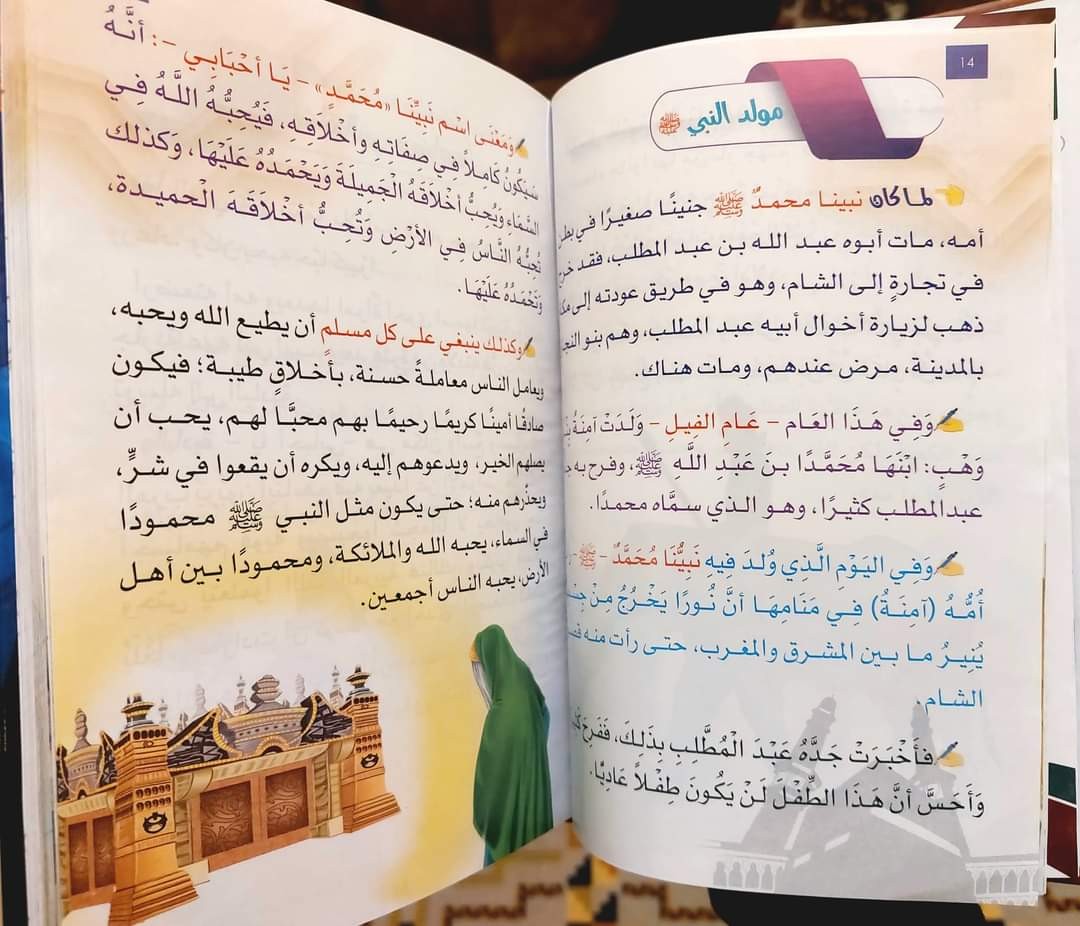 14
مولد النبي ﷺ
لما كان نبينا محمدٌ ﷺ جنينًا صغيرًا في بطن
أمه، مات أبوه عبد الله بن عبد المطلب، فقد خرج
في تجارةٍ إلى الشام، وهو في طريق عودته إلى
ذهب لزيارة أخوال أبيه عبد المطلب، وهم بنو
بالمدينة، مرض عندهم، ومات هناك.
وَفِي هَذَا العَام – عَامِ الفِيلِ – وَلَدَتْ آمِنَةُ
وَهْبٍ: ابْنَهَا مُحَمَّدًا بنَ عَبْدِ اللَّهِ ﷺ، وفرح به
عبد المطلب كثيرًا، وهو الذي سمَّاه محمدًا.
وَفي اليَوْمِ الَّذِي وُلدَ فِيهِ نَبِيُّنَا مُحَمَّدٌ – ﷺ –
أُمُّهُ (آمِنَةُ) فِي مَنَامِهَا أنَّ نُورًا يَخْرُجُ مِنْ
يُنِيرُ ما بين المشرق والمغرب، حتى رأت منه
الشام.
فأخْبَرَتْ جَدَّهُ عَبْدَ الْمُطَّلِبِ بِذَلِكَ، فَفَرِحَ
وَأَحَسَّ أنَّ هَذَا الطِّفْلَ لَنْ يَكُونَ طِفْلاً عَادِيًّا.
وَمَعْنَى اسْمِ نَبِيِّنَا «مُحَمَّدٍ» – يَا أحْبَابِي –: أنَّهُ
سَيَكُونُ كَامِلاً في صِفَاتِهِ وأخْلاَقِه، فَيُحِبُّهُ اللَّهُ فِي
السَّمَاءِ وَيُحِبُّ أخْلاَقَهُ الجَمِيلَةَ وَيَحْمَدُهُ عَلَيْهَا، وَكَذلك
تُحِبُّهُ النَّاسُ فِي الأرْضِ وَتُحِبُّ أخْلاَقَهَ الْحميدة،
وَتَحْمَدُهُ عَلَيْهَا.
وكذلك ينبغي على كل مسلم أن يطيع الله ويحبه،
ويعامل الناس معاملةً حسنة، بأخلاقٍ طيبة؛ فيكون
صادقًا أمينًا كريمًا رحيمًا بهم محبًّا لهم، يحب أن
يصلهم الخير، ويدعوهم إليه، ويكره أن يقعوا في شرٍّ،
ويحذّرهم منه؛ حتى يكون مثل النبي ﷺ محمودًا
في السماء، يحبه الله والملائكة، ومحمودًا بين أهل
الأرض، يحبه الناس أجمعين.